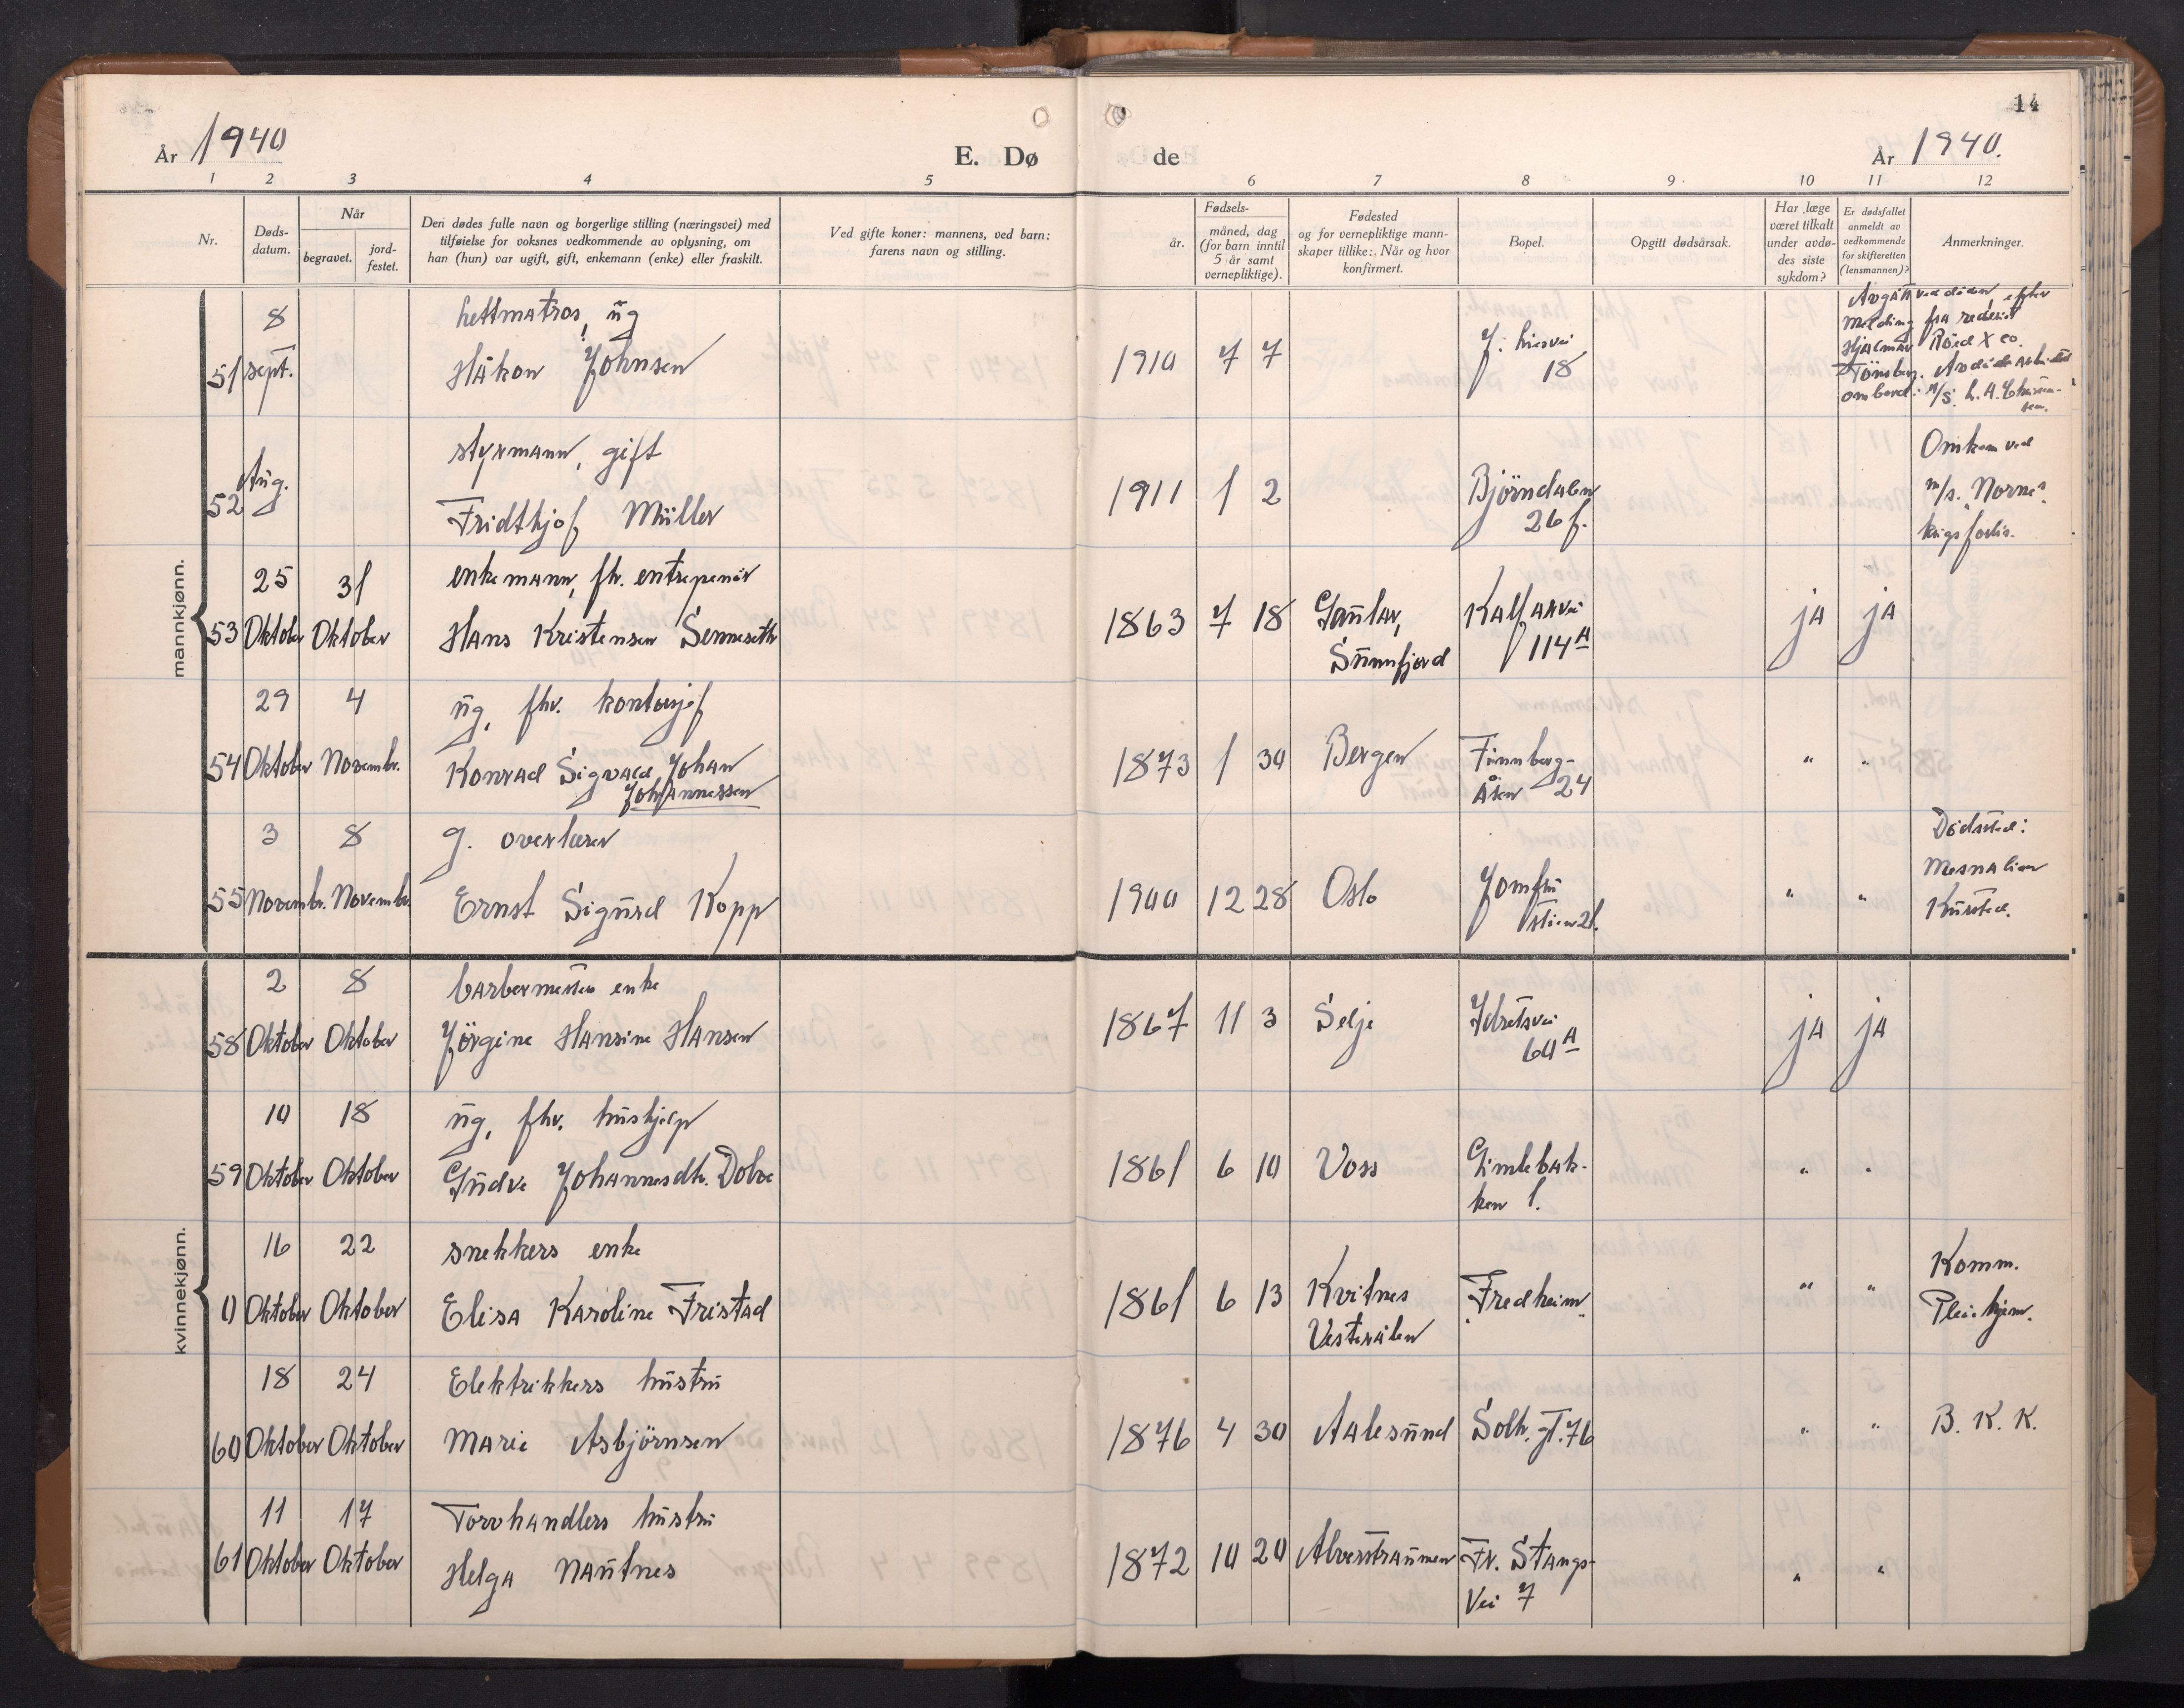 14
År 1940
E. Dø
de
År 1940.
1 2 3 4 5 6 7 8 9 10 11 12
Nr.
Døds-
datum.
Når
begravet.
jord-
festet.
Den dødes fulle navn og borgerlige stilling (næringsvei) med
tilføielse for voksnes vedkommende av oplysning, om
han (hun) var ugift, gift, enkemann (enke) eller fraskilt.
Ved gifte koner: mannens, ved barn:
farens navn og stilling.
Fødsels-
år.
måned, dag
(for barn inntil
5 år samt
vernepliktige).
Fødested
og for vernepliktige mann-
skaper tillike: Når og hvor
konfirmert.
Bopel.
Opgitt dødsårsak.
Har læge
været tilkalt
under avdø-
des siste
sykdom?
Er dødsfallet
anmeldt av
vedkommende
for skifteretten
(lensmannen)?
Anmerkninger.
mannkjønn.
8 lettmatros, ug
51 sept. Håkon Johnsen 1910 7 7
18
Avgått ved døden, efter
melding fra rederiet
Hjalmar Röed & co.
Tönsberg.
ombord: M/S.
styrmann, gift
52 Aug. Fridthjof Müller 1911 1 2 Björndalen
26 f.
Omkom ved
m/s. "Norne".
krigsforlis.
25 31 enkemann, fh. entreprenör
53 Oktober Oktober Hans Kristensen Senneseth 1863 7 18 Gaular, Kalfarvei ja ja
Sunnfjord 114A
29 4 ug, fhv. kontorsjef
54 Oktober Novembr. Konrad Sigvald Johan 1873 1 30 Bergen Finnberg- " "
Johannessen åsen 24
3 8 g. overlærer
55 Novembr. Novembr. Ernst Sigurd Kopp 1900 12 28 Oslo Jomfru " "
stien 21.
Dödssted:
Mesnalien
Kursted.
kvinnekjønn.
2 8 barbermesters enke
58 Oktober Oktober Jörgine Hansine Hansen 1867 11 3 Selje Idretsvei ja ja
60A
10 18 ug, fhv. hushjelp
59 Oktober Oktober Gudve Johannesdtr. Dolve 1861 6 10 Voss Gimlebak- " "
ken 1.
16 22 snekkers enke
0 Oktober Oktober Elisa Karoline Fristad 1861 6 13 Kvitnes "Fredheim". " " Komm.
Vesterålen Pleiehjem.
18 24 Elektrikkers hustru
60 Oktober Oktober Marie Asbjörnsen 1876 4 30 Aalesund Solh. gt. 76 " " B. K. K.
11 17 Torvhandlers hustru
61 Oktober Oktober Helga Nautnes 1872 10 20 Alverstraumen Fr. Stangs- " "
Vei 7